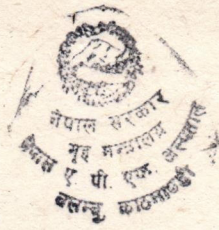 नेपाल सरकार
गृह मन्त्रालय
नेपाल ए. पी. एफ. अस्पताल
बलम्बु, काठमाण्डौ